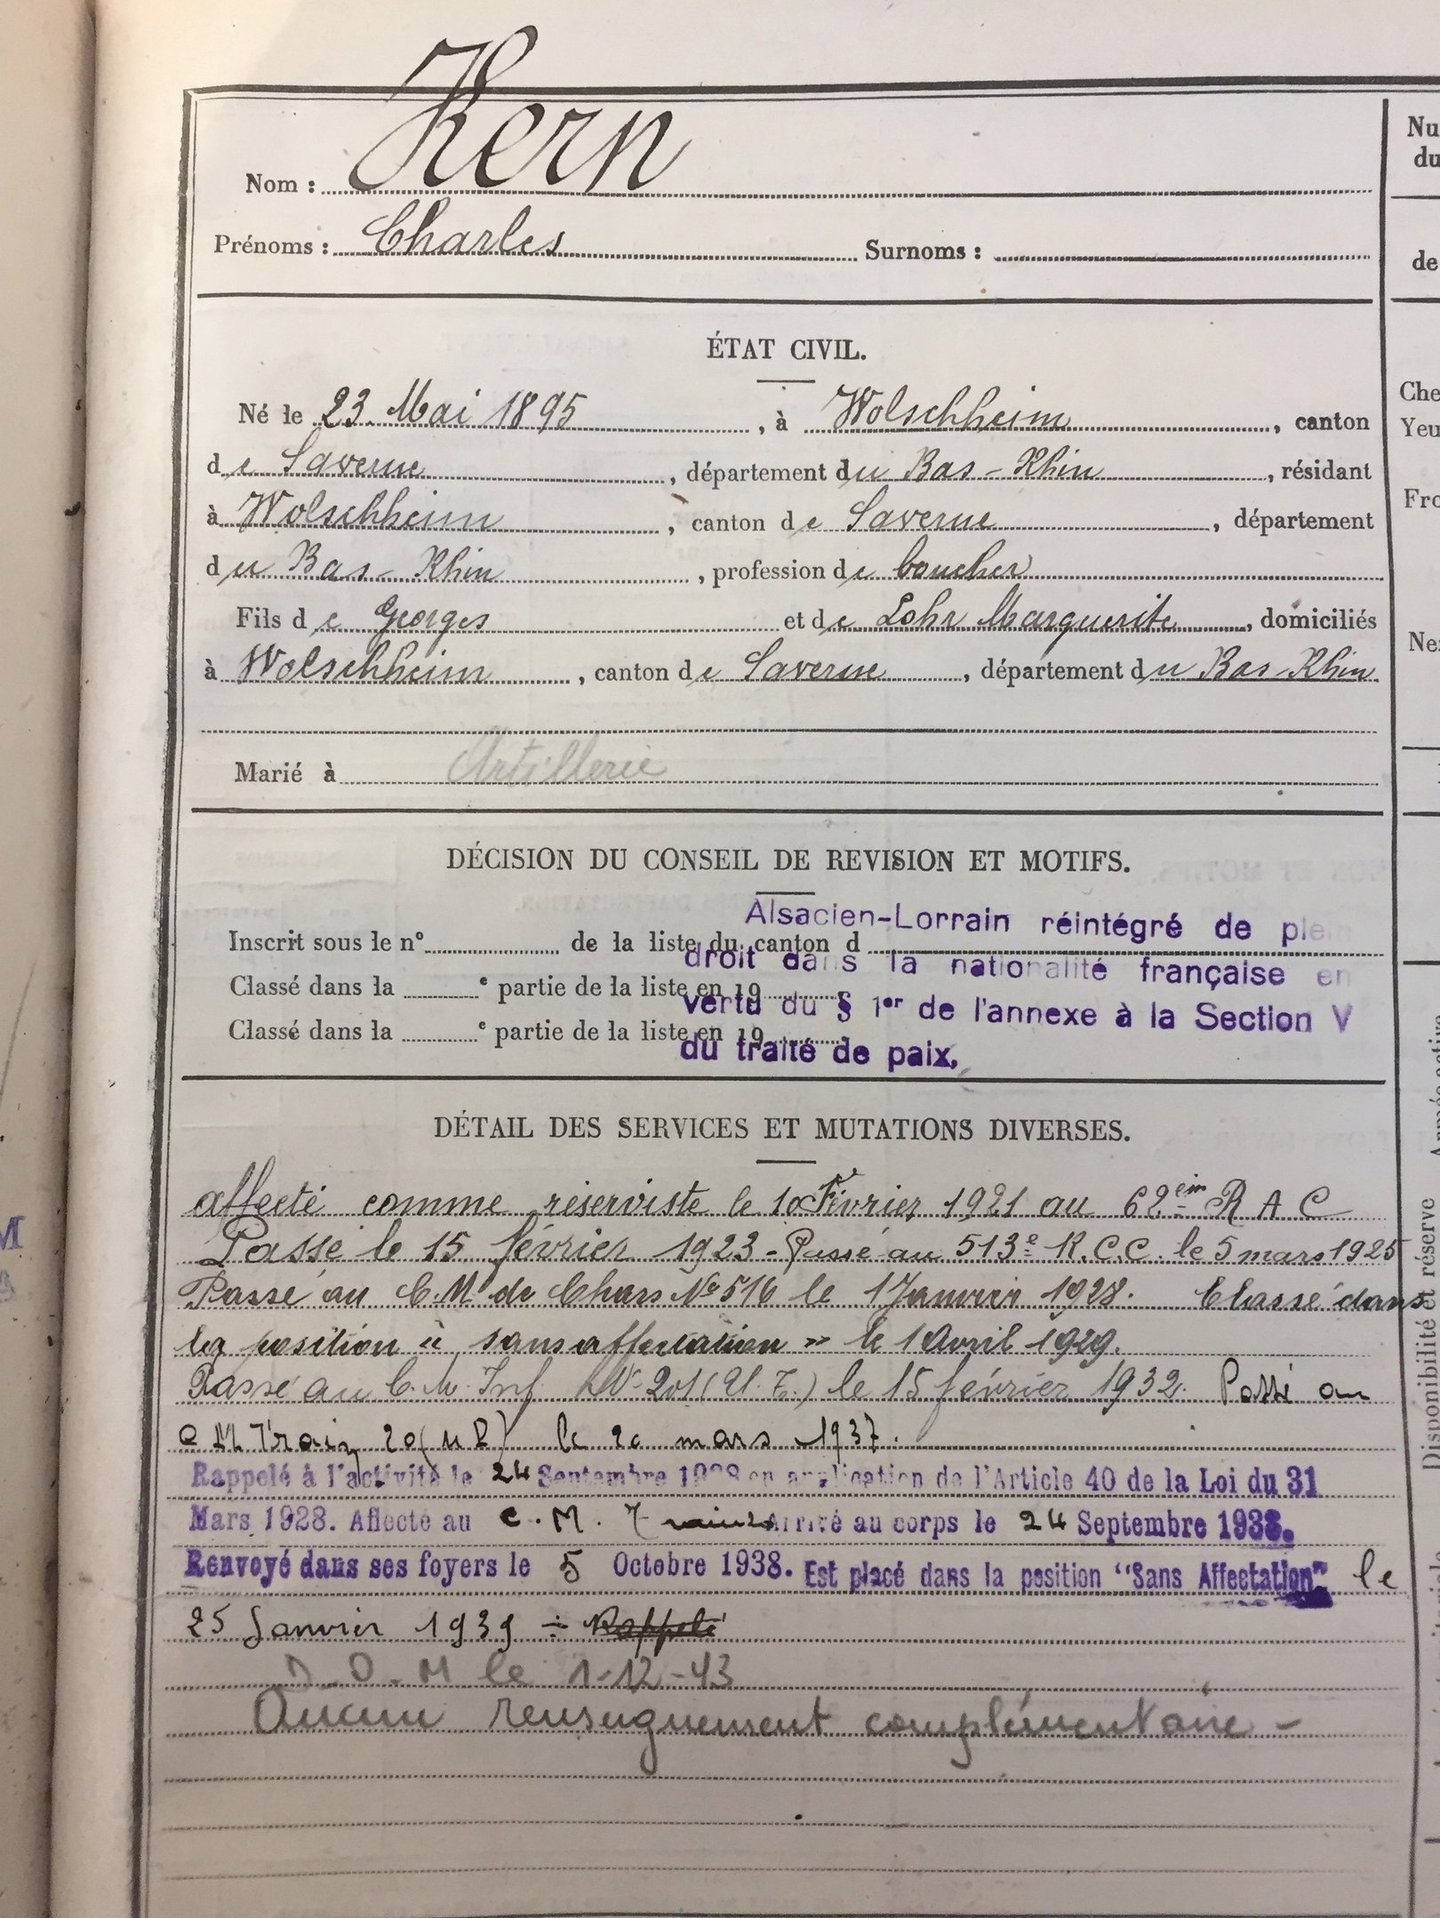 Kern
Nom :
Prénoms : Charles Surnoms :
ÉTAT CIVIL.
Né le 23 Mai 1895, à Wolschheim, canton
de Saverne, département du Bas-Rhin, résidant
à Wolschheim, canton de Saverne, département
du Bas-Rhin, profession de boucher
Fils de Georges et de Lohr Marguerite, domiciliés
à Wolschheim, canton de Saverne, département du Bas-Rhin
Marié à Artillerie
DÉCISION DU CONSEIL DE REVISION ET MOTIFS.
Alsacien-Lorrain réintégré de plein
Inscrit sous le n° de la liste du canton d
droit dans la nationalité française en
Classé dans la e partie de la liste en 19
vertu du § 1er de l'annexe à la Section V
Classé dans la e partie de la liste en 19
du traité de paix.
DÉTAIL DES SERVICES ET MUTATIONS DIVERSES.
affecté comme réserviste le 10 Février 1921 au 62eim R A C
Passé le 15 février 1923 - Passé au 513e R.C.C. le 5 mars 1925
Passé au C.M. de Chars No 516 le 1 Janvier 1928. Classé dans
la position « sans affectation » le 1 Avril 1929.
Passé au C. M. Inf No 201 le 15 février 1932. Passé au
C M Train 20 le 20 mars 1937.
Rappelé à l'activité le 24 Septembre 1938 en application de l'Article 40 de la Loi du 31
Mars 1928. Affecté au C. M. Train Arrivé au corps le 24 Septembre 1938.
Renvoyé dans ses foyers le 5 Octobre 1938. Est placé dans la position "Sans Affectation" le
25 Janvier 1939 ÷ Rappelé
D.O.M le 1-12-43
Aucun renseignement complémentaire -
Nu
du
de
Che
Yeu
Fro
Ne
Disponibilité et réserve